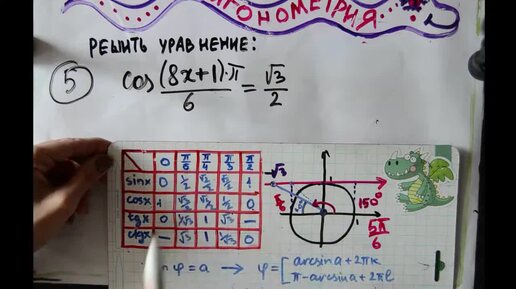 ТРИГОНОМЕТРИЯ
РЕШИТЬ УРАВНЕНИЕ:
5 cos (8x+1)·π/6 = √3/2
0 π/6 π/4 π/3 π/2
sinx 0 1/2 √2/2 √3/2 1
cosx 1 √3/2 √2/2 1/2 0
tgx 0 1/√3 1 √3 —
ctgx — √3 1 1/√3 0
-√3
π/6
150°
1
5π/6
φ=a → φ= [ arcsina+2πk
π-arcsina+2πl